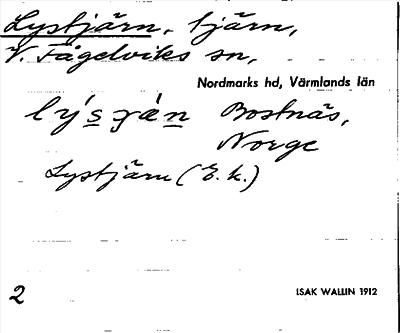 Lystjärn, tjärn,
V. Fågelviks sn,
Nordmarks hd, Värmlands län
Bostnäs,
Norge
Lystjärn (E.k.)
2
ISAK WALLIN 1912